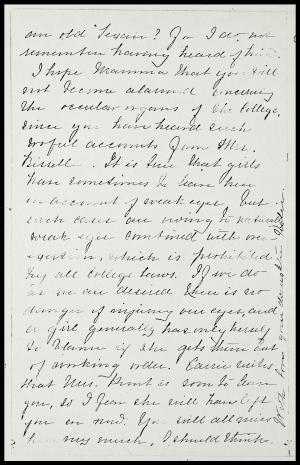 an old Texan? For I do not
remember having heard of him.
I hope Mamma that you will
not become alarmed concerning
the occular organs of the College,
since you have heard such
woful accounts from Mr.
Bissell. It is true that girls
have sometimes to leave here
on account of weak eyes but
such cases are owing to natural
weak eyes combined with over
exertion, which is prohibited
by all College laws. If we do
as we are desired there is no
danger of injuring our eyes, and
a girl generally has only herself
to blame if she gets them out
of working order. Carrie writes
that Mrs. is soon to leave
you, so I fear she will have left
you ere now. You will all miss
her very much, I should think.
With love your daughter